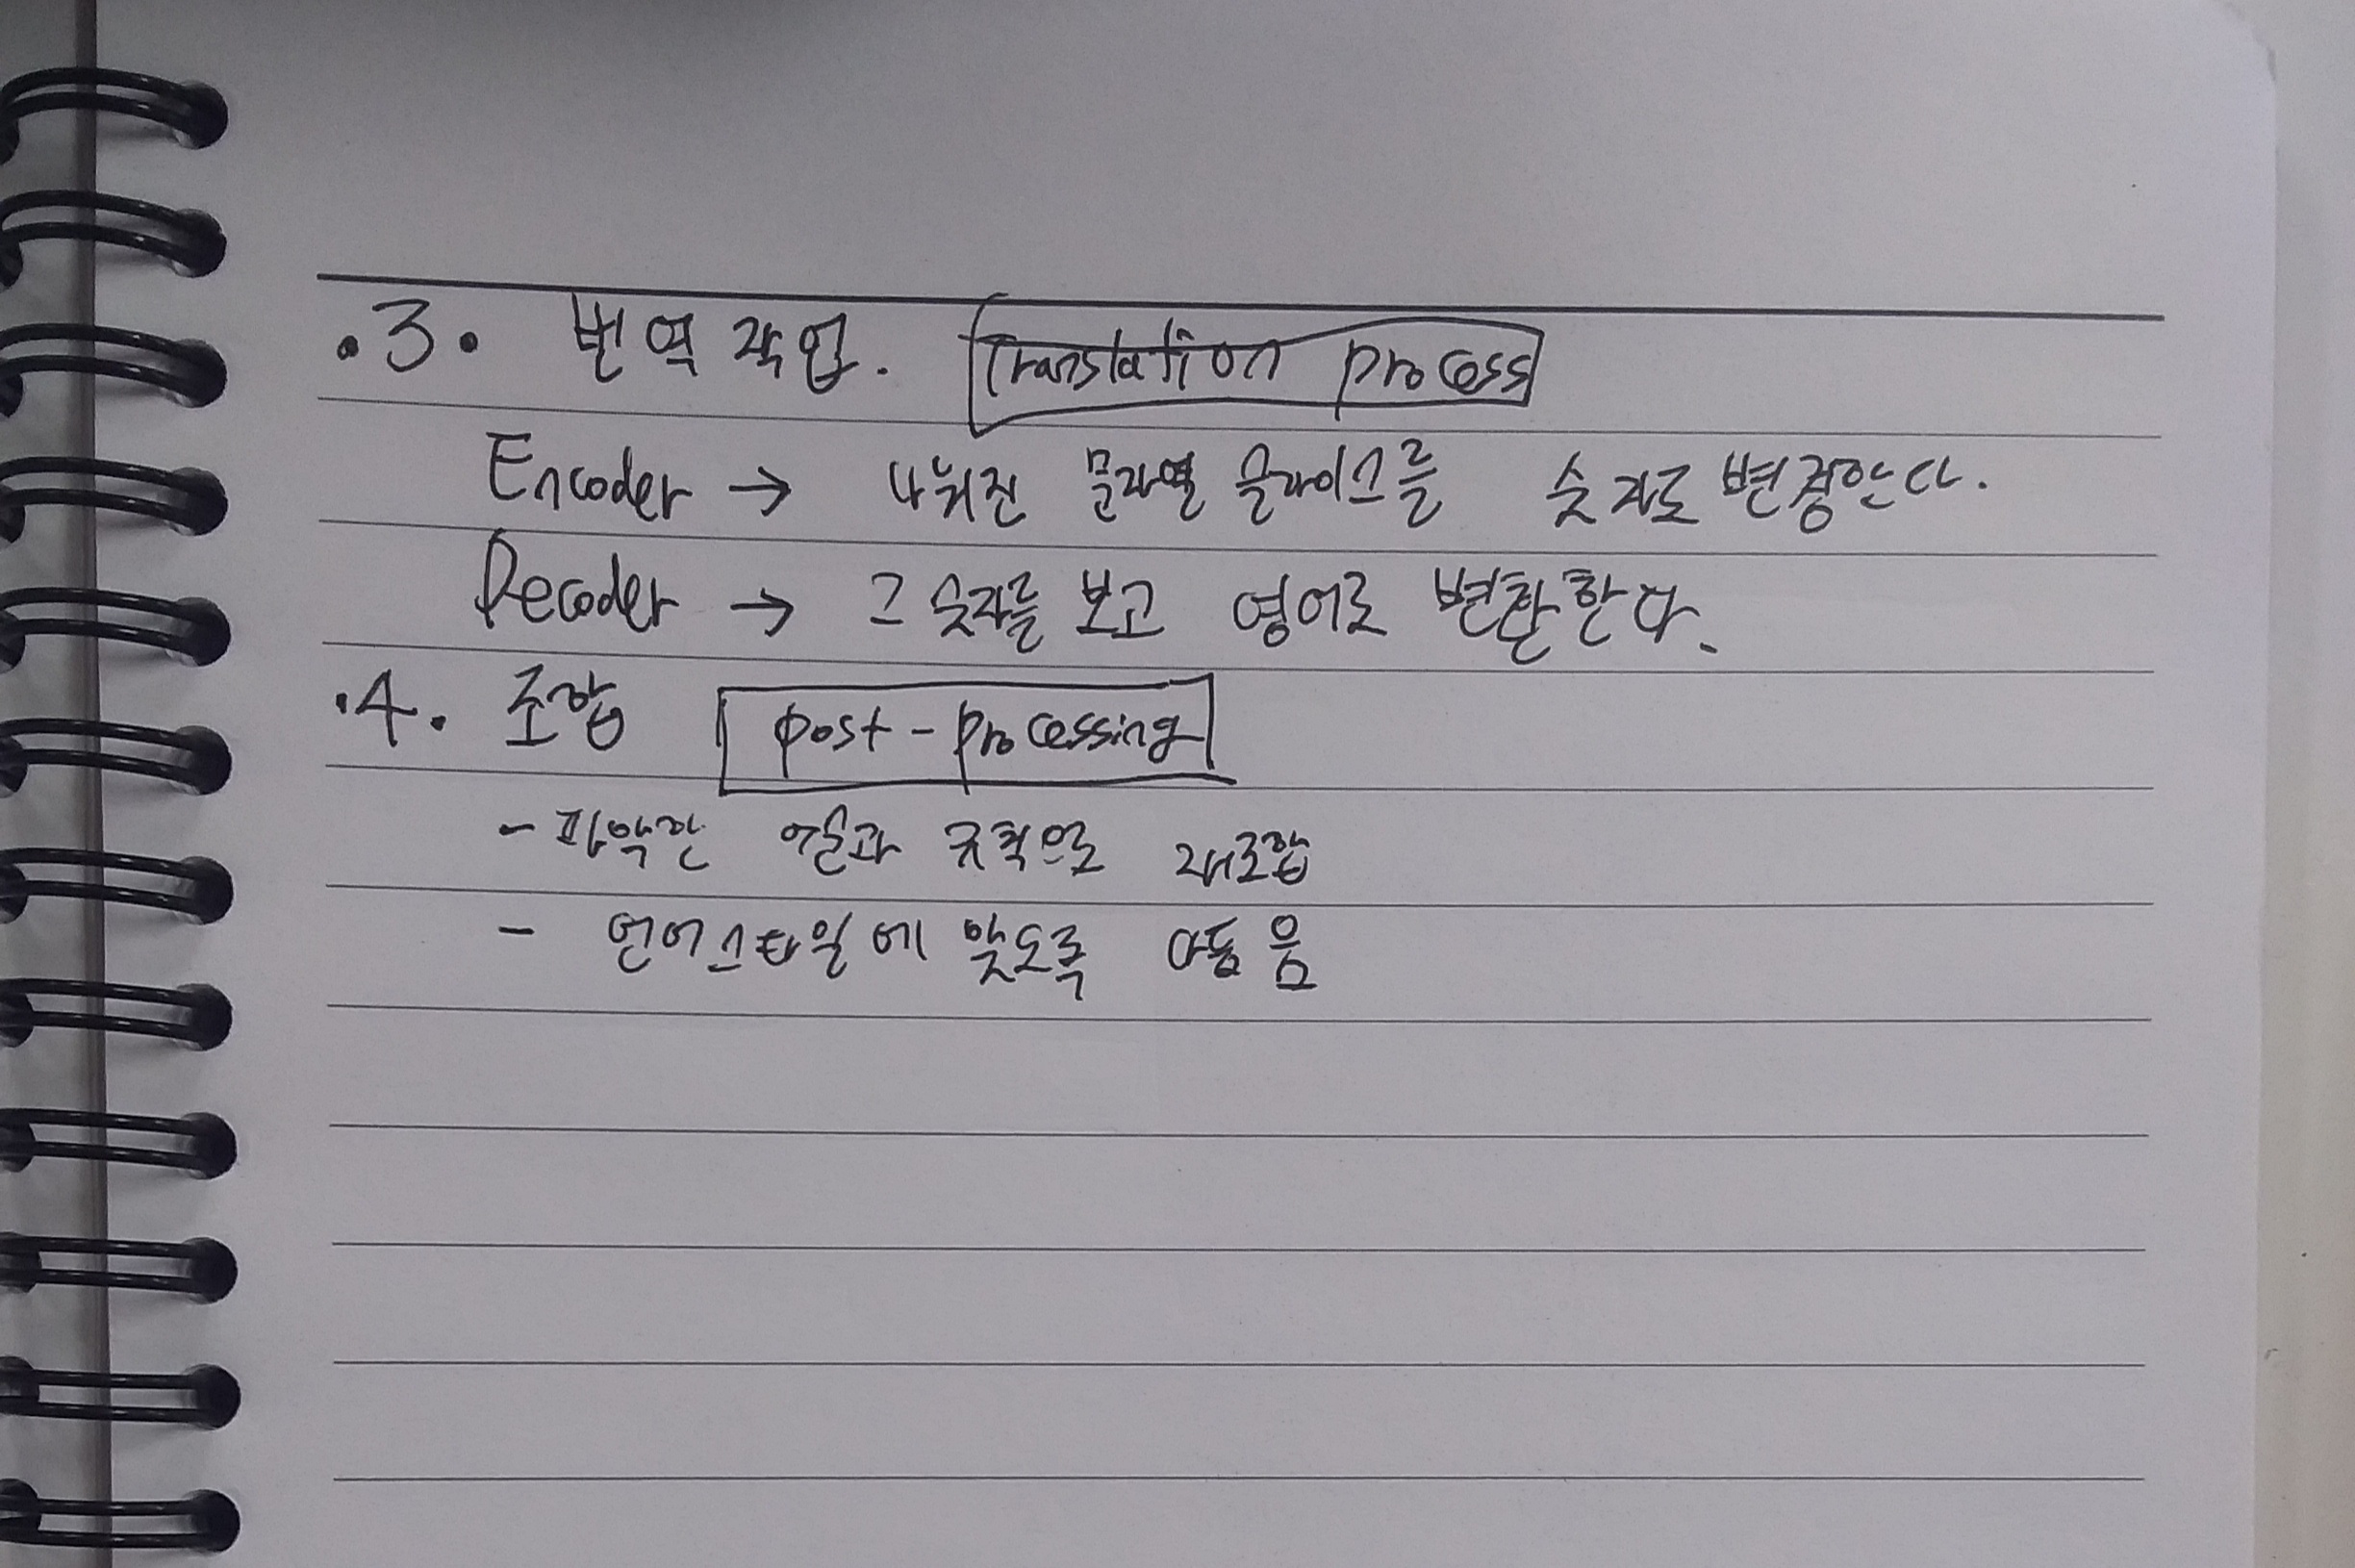 .3. 번역 작업. Translation process
Encoder → 나눠진 문자열 슬라이스를 숫자로 변경한다.
Decoder → 그 숫자를 보고 영어로 변환한다.
.4. 조합 post-processing
- 파악한 어순과 규칙으로 재조합
- 언어스타일에 맞도록